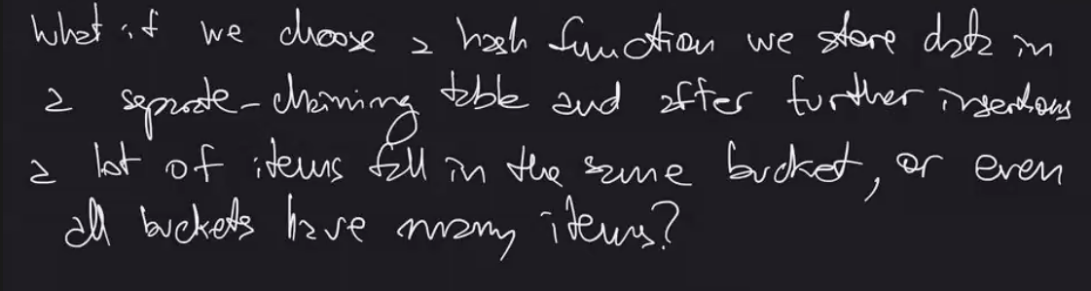 What if we choose a hash function we store data in
a separate-chaining table and after further insertions
a lot of items fall in the same bucket, or even
all buckets have many items?